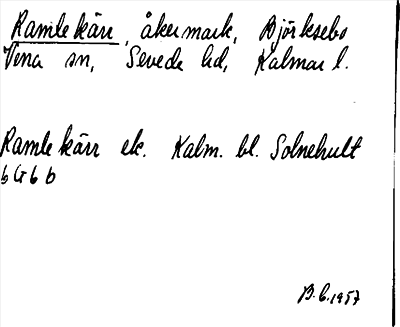 Ramlekärr, åkermark, Björksebo
Vena sn, Sevede hd, Kalmar l.
Ramlekärr ek. Kalm. bl. Solnehult
6G6b
B.C. 1957